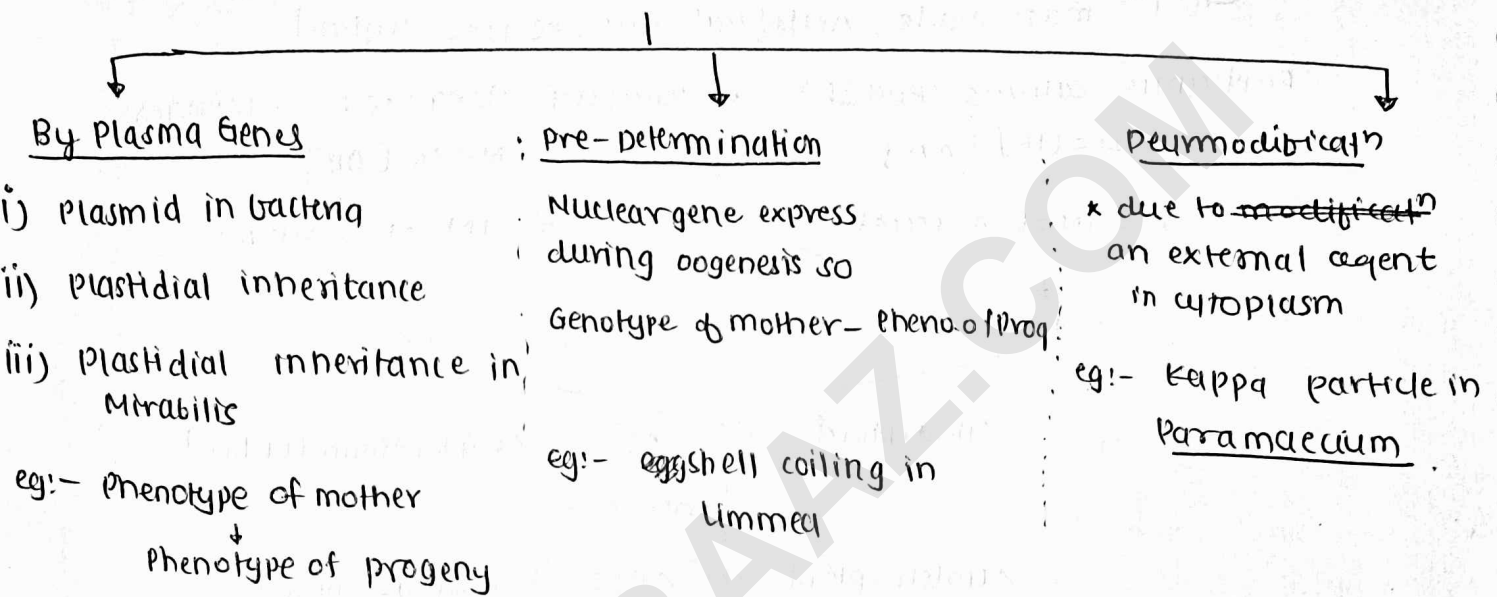 By Plasma Genes
i) Plasmid in bacteria
ii) Plastidial inheritance
iii) Plastidial inheritance in
Mirabilis
eg:- Phenotype of mother
↓
Phenotype of progeny
Pre-Determination
Nuclear gene express
during oogenesis so
Genotype of mother - Pheno. of Prog.
eg:- eggshell coiling in
Limmea
* due to
an external agent
in cytoplasm
eg:- Kappa particle in
Paramaecium.
AAZ.COM